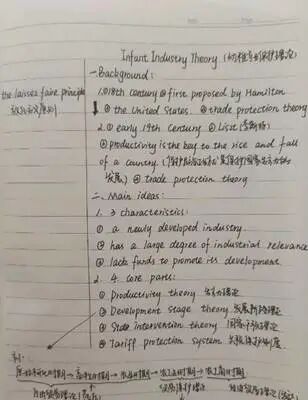 Infant Industry Theory (幼稚产业保护理论)
the laissez faire principle
自由放任原则
一.Background:
1.①18th century ②first proposed by Hamilton
③ the United States. ④trade protection theory
2.① early 19th century ② List (李斯特)
③productivity is the key to the rise and fall
of a country.
发展) ④ trade protection theory
二. Main ideas:
1. 3 characteristics:
① a newly developed industry.
② has a large degree of industrial relevance
③ lack funds to promote its development.
2. 4 core parts:
① Productivity theory 生产力理论
② Development stage theory 发展阶段理论
③ State intervention theory 国家干预理论
④ Tariff protection system 关税保护制度